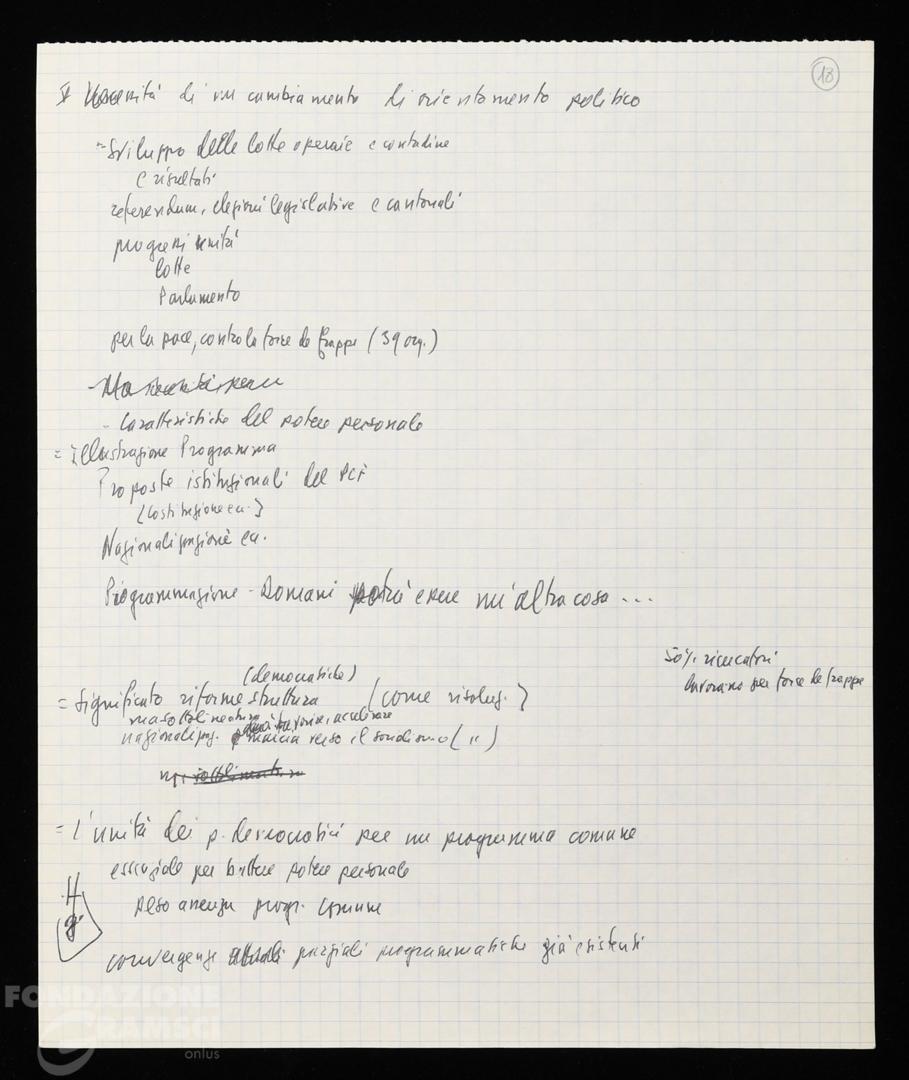 18
V Necessità di un cambiamento di orientamento politico
= Sviluppo delle lotte operaie e contadine
e risultati
referendum, elezioni legislative e cantonali
progressi unità
lotte
Parlamento
per la pace, contro la force de frappe (39 org.)
- Caratteristiche del potere personale
= Illustrazione Programma
Proposte istituzionali del PCF
(Costituzione ecc.)
Nazionalizzazione ecc.
Programmazione - Domani potrà essere un'altra cosa ...
50% ricercatori
lavorano per force de frappe
(democratiche)
= Significato riforme struttura (come risoluz.)
ma sottolineatura favorire, accelerare
nazionalizz. marcia verso il socialismo (")
= L'unità dei p. democratici per un programma comune
essenziale per battere potere personale
Peso assenza progr. comune
convergenze parziali programmatiche già esistenti
FONDAZIONE
GRAMSCI
onlus